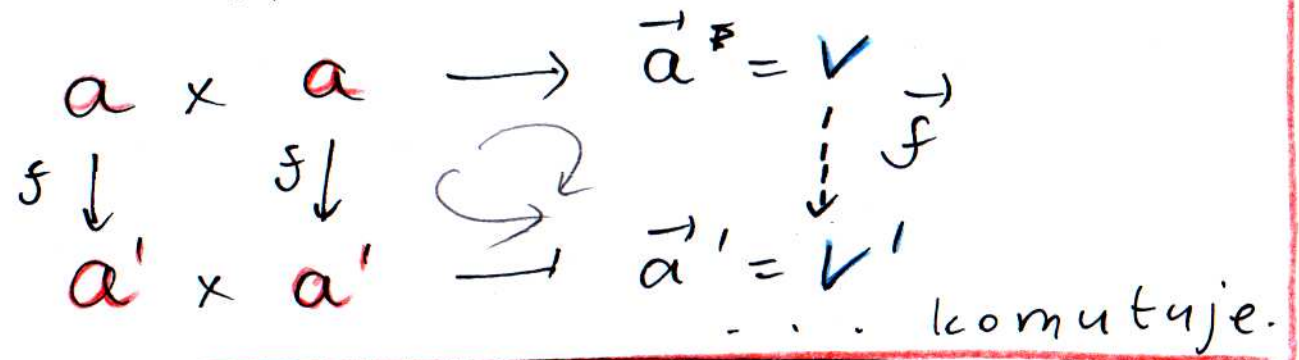 a × a → a⃗ = V
f ↓ f ↓ f⃗
a' × a' → a⃗' = V'
. . . komutuje.